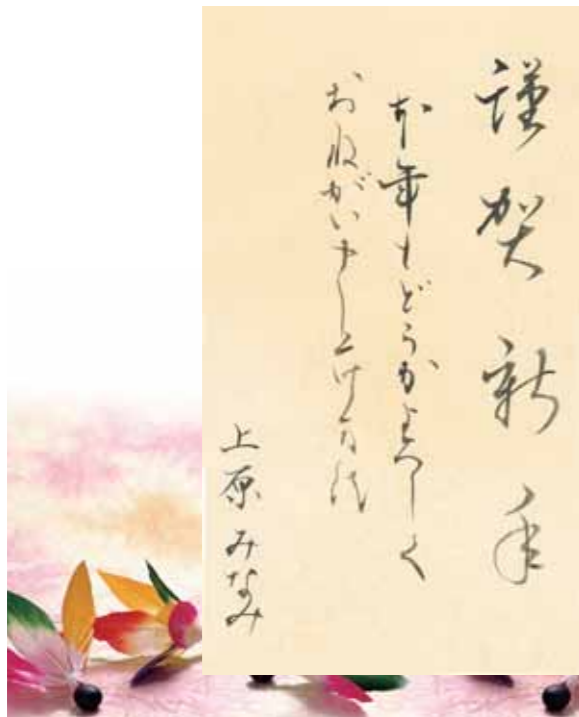 謹賀新年
本年もどうかよろしく
おねがい申し上げます
上原みなみ